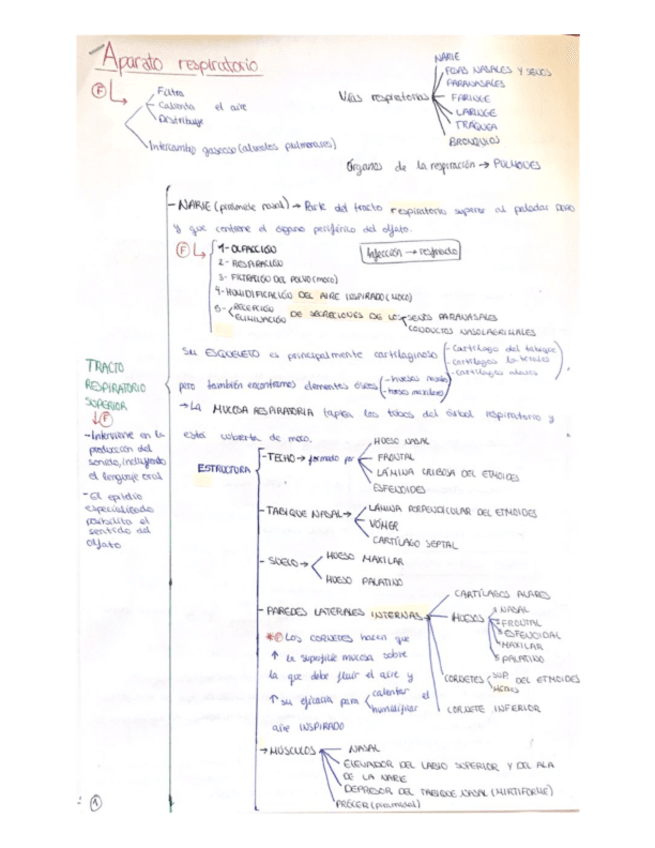 Aparato respiratorio
F
Filtra
Calienta el aire
Distribuye
Intercambio gaseoso (alveolos pulmonares)
Vías respiratorias
NARIZ
FOSAS NASALES Y SENOS
PARANASALES
FARINGE
LARINGE
TRÁQUEA
BRONQUIOS
Órganos de la respiración → PULMONES
TRACTO
RESPIRATORIO
SUPERIOR
F
- Interviene en la
producción del
sonido, incluyendo
el lenguaje oral
- El epitelio
especializado
posibilita el
sentido del
olfato
- NARIZ (pirámide nasal) → Parte del tracto respiratorio superior al paladar DURO
y que contiene el órgano periférico del olfato.
F
1- OLFACCIÓN
2- RESPIRACIÓN
3- FILTRACIÓN DEL POLVO (moco)
4- HUMIDIFICACIÓN DEL AIRE INSPIRADO (MOCO)
5- RECEPCIÓN
ELIMINACIÓN DE SECRECIONES DE LOS SENOS PARANASALES
CONDUCTOS NASOLAGRIMALES
Infección → resfriado
Su ESQUELETO es principalmente cartilaginoso
- cartílago del tabique
- cartílagos laterales
- cartílagos alares
pero también encontramos elementos óseos
- huesos nasales
- huesos maxilares
→ LA MUCOSA RESPIRATORIA tapiza los tubos del árbol respiratorio y
está cubierta de moco.
ESTRUCTURA
- TECHO → formado por
HUESO NASAL
FRONTAL
LÁMINA CRIBOSA DEL ETMOIDES
ESFENOIDES
- TABIQUE NASAL →
LÁMINA PERPENDICULAR DEL ETMOIDES
VÓMER
CARTÍLAGO SEPTAL
- SUELO →
HUESO MAXILAR
HUESO PALATINO
- PAREDES LATERALES INTERNAS
CARTÍLAGOS ALARES
HUESOS
NASAL
FRONTAL
ESFENOIDAL
MAXILAR
PALATINO
CORNETES
SUP. DEL ETMOIDES
MEDIO
CORNETE INFERIOR
* F LOS CORNETES hacen que
↑ la superficie mucosa sobre
la que debe fluir el aire y
↑ su eficacia para calentar el
humidificar
aire INSPIRADO
→ MÚSCULOS
NASAL
ELEVADOR DEL LABIO SUPERIOR Y DEL ALA
DE LA NARIZ
DEPRESOR DEL TABIQUE NASAL (MIRTIFORME)
PRÓCER (piramidal)
1